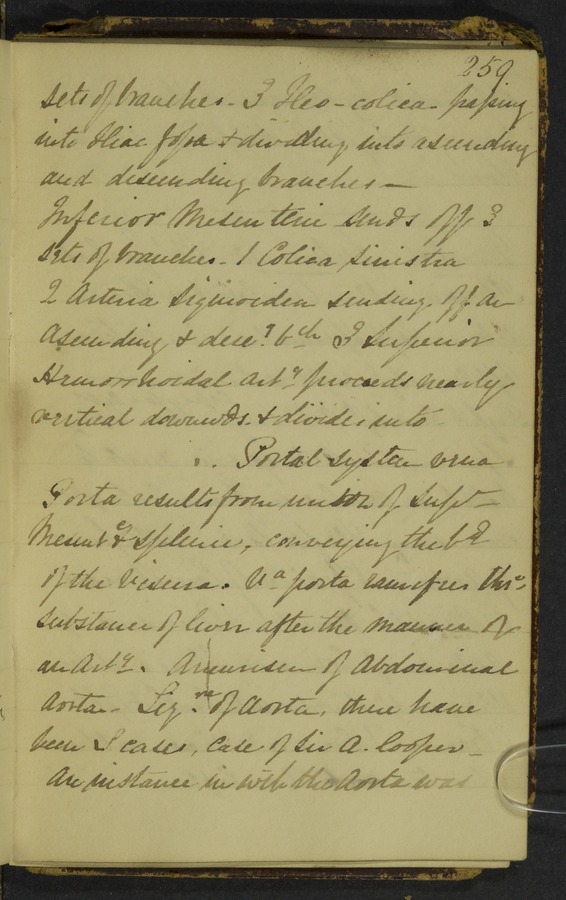 259
sets of branches - 3 Ileo-colica - passing
into Iliac fossa & dividing into ascending
and descending branches —
Inferior Mesenteric sends off 3
sets of branches - 1 Colica Sinistra
2 Arteria Sigmoidea sending off an
ascending & desc.g bch 3 Superior
Hemorrhoidal arty proceeds nearly
vertical downwds. & divides into
Portal System vena
Porta results from union of Supr
Mesentc & splenic, conveying the bd
of the Viscera. Va porta ramifies thro'
substance of liver after the manner of
an Arty. Aneurism of Abdominal
Aorta - Ligre of Aorta, there have
been cases, Case of Sir A. Cooper -
An instance in wch the Aorta was